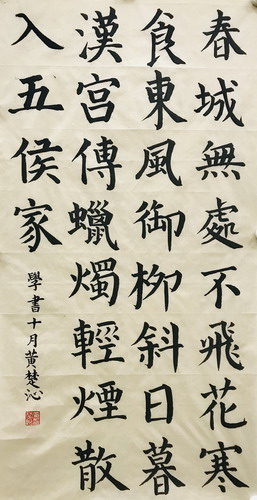 春城無處不飛花寒
食東風御柳斜日暮
漢宮傳蠟燭輕煙散
入五侯家
學書十月黃楚沁